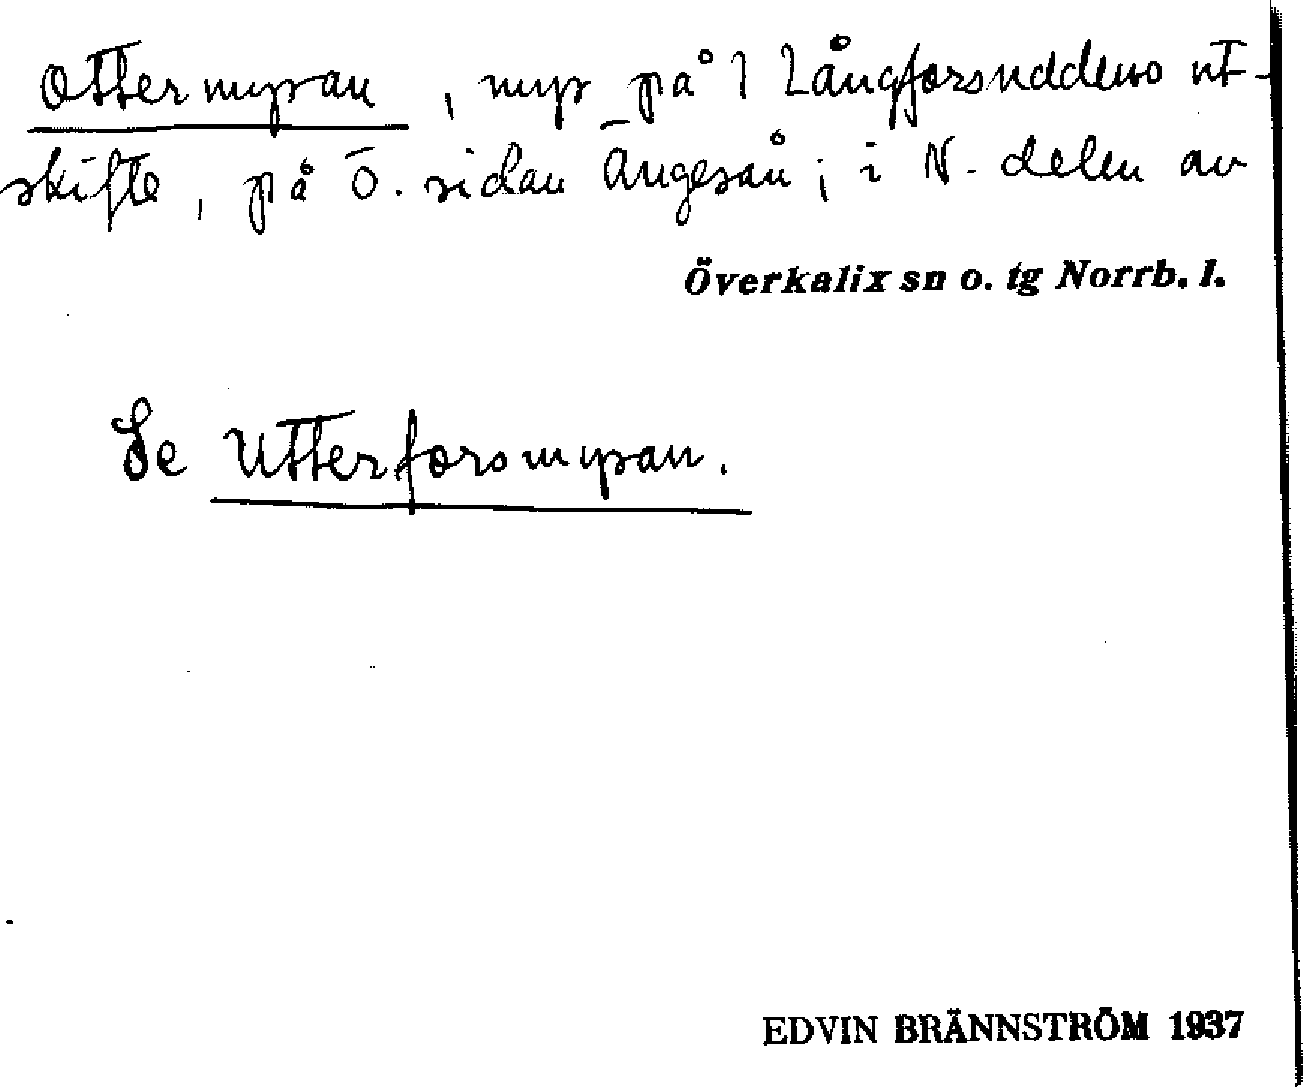 Ottermyran, myr på 1 Långforsuddens ut-
skifte, på Ö. sidan Ängesån; i N. delen av
Överkalix sn o. tg Norrb. l.
Se Utterforsmyran.
EDVIN BRÄNNSTRÖM 1937